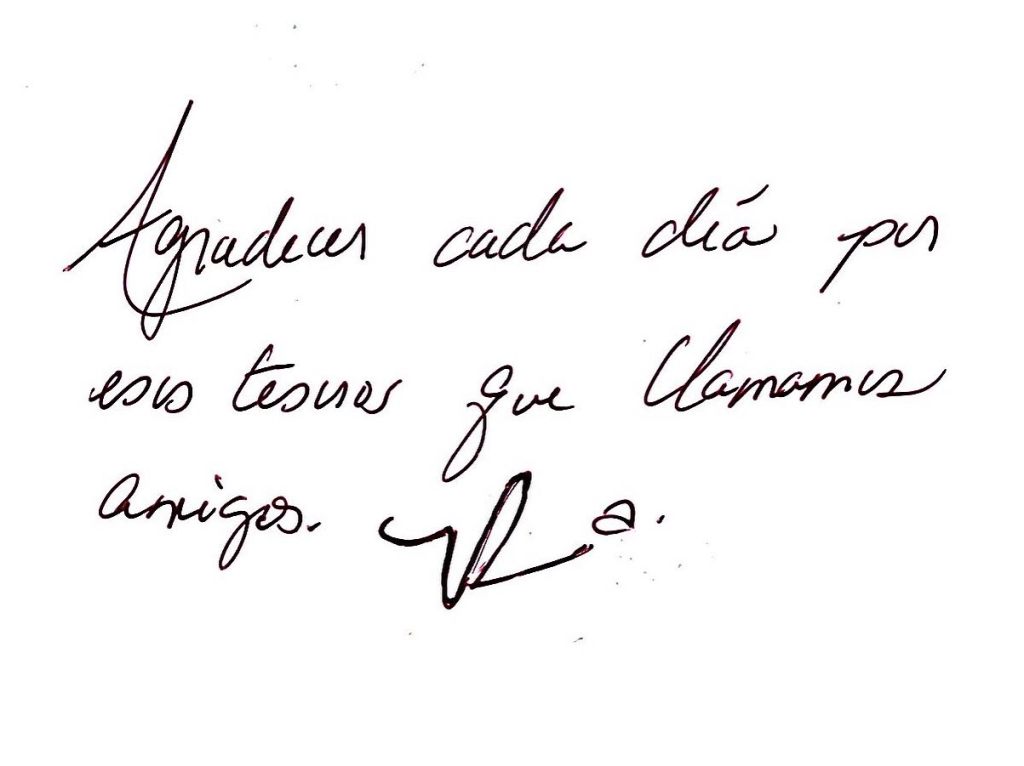 Agradecer cada día por
esos tesoros que llamamos
amigos.